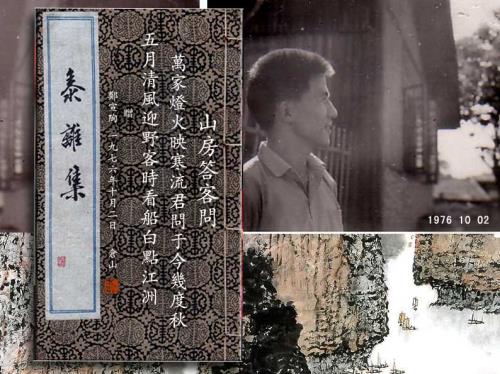 山房答客問
萬家燈火映寒流君問于今幾度秋
五月清風迎野客時看船白點江洲
贈
鄭宣陶 一九七六年十月二日 倉山
黍離集
1976 10 02